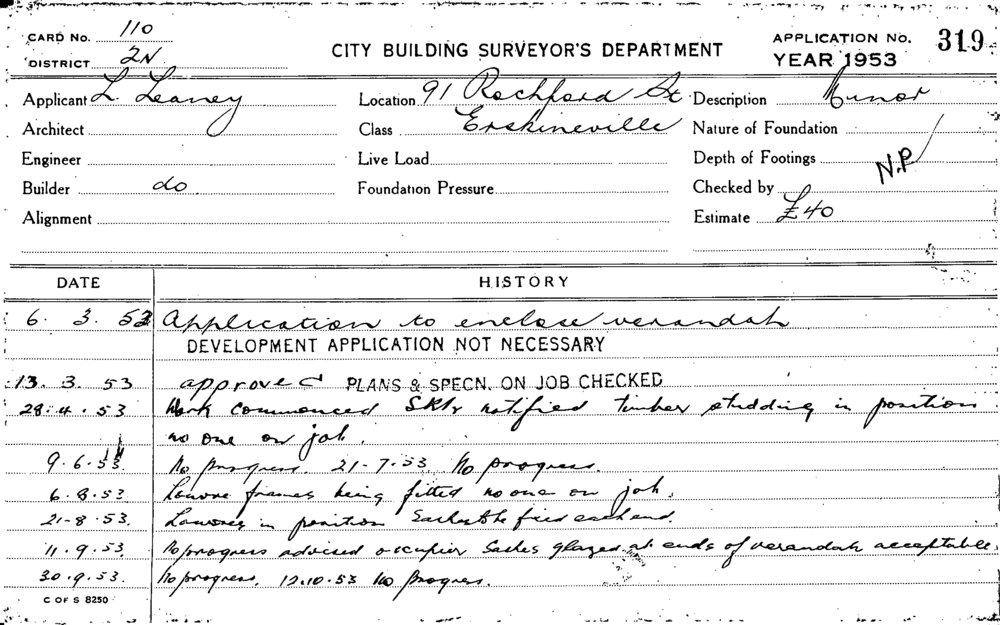 CARD No. 110
DISTRICT 2N
CITY BUILDING SURVEYOR'S DEPARTMENT
APPLICATION No. 319
YEAR 1953
Applicant L. Leaney
Location 91 Rochford St
Description Minor
Architect
Class Erskineville
Nature of Foundation
Engineer
Live Load
Depth of Footings
N.P
Builder do
Foundation Pressure
Checked by
Alignment
Estimate £40
DATE HISTORY
6. 3. 53 Application to enclose verandah
DEVELOPMENT APPLICATION NOT NECESSARY
13. 3. 53 approved PLANS & SPECN. ON JOB CHECKED
28. 4. 53 Work commenced notified timber studding in position
no one on job.
9. 6. 53 No progress. 21-7-53 No progress.
6. 8. 53 Louvre frames being fitted no one on job.
21-8-53. Louvres in position Sashes to be fixed each end.
11. 9. 53. No progress advised occupier Sashes glazed at ends of verandah acceptable.
30. 9. 53. No progress. 12.10.53 No progress.
C OF S 8250